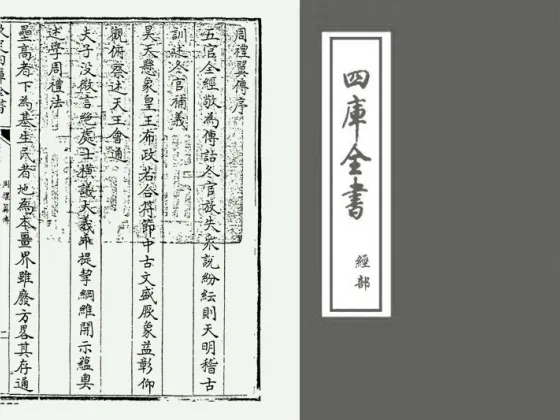 周禮翼傳序
五官全經敬為傳詁冬官放失衆說紛紜則天明稽古
訓述冬官補義
昊天懸象皇王布政若合符節中古文盛厥象益彰仰
觀俯察述天王會通
夫子没微言絶處士横議大義乖提挈綱維開示蘊奥
述學周禮法
壘高者下為基生民者地為本畺界雖廢方畧其存通
周禮翼傳
四庫全書
經部